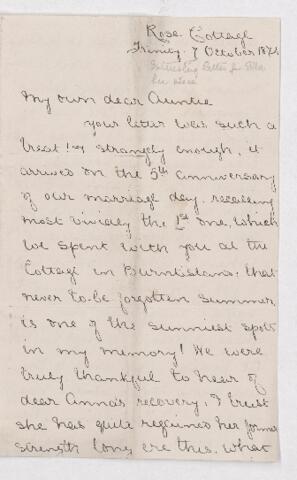 Rose Cottage
Trinity. 7 October 187
Interesting Letter
her niece
My own dear Auntie
your letter was such a
treat! & strangely enough, it
arrived on the 5th anniversary
of our marriage day, recalling
most vividly the 1st one, which
we spent with you at the
Cottage in Burntisland; that
never to be forgotten summer
is one of the sunniest spots
in my memory! We were
truly thankful to hear of
dear Anna's recovery, & trust
she has quite regained her former
strength long ere this. What